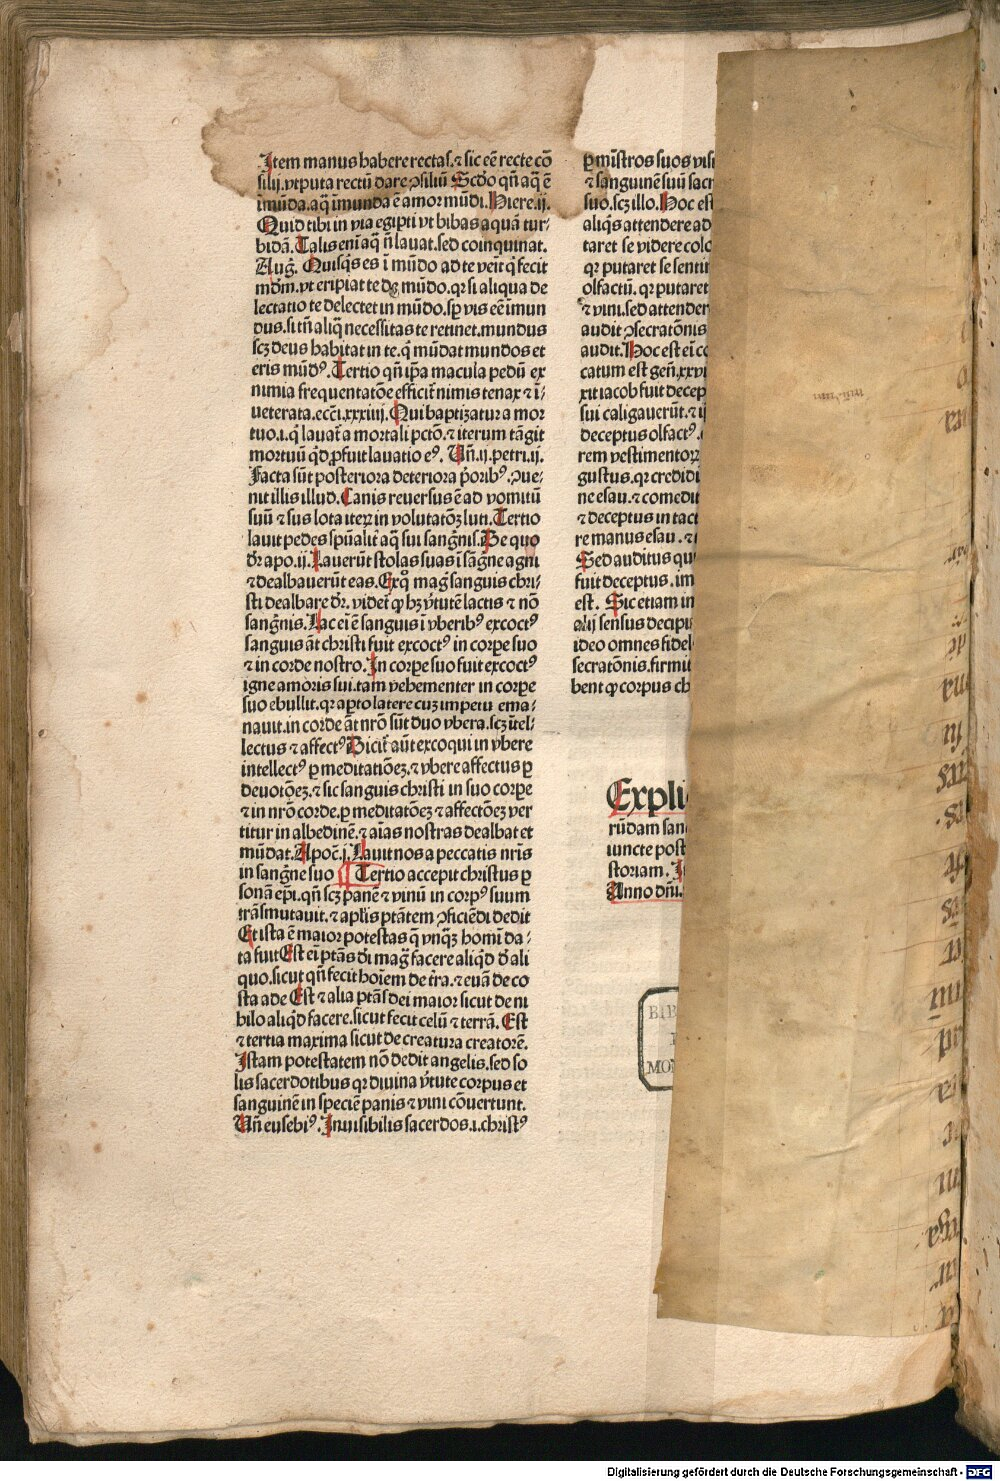 Item manus habere rectas.⁊ sic eē recte cō
silij.vtputa rectū dare ↄsiliū Scd'o qn̄ aq̄ ē
īmūda.aq̄ īmunda ē amor mūdi.Hiere.ij.
Quid tibi in via egipti vt bibas aquā tur⸗
bidā.Talis enī aq̄ n̄ lauat.sed coinquinat.
Aug̃. Quisq̇s es ī mūdo ad te veīt q̇ fecit
mdm̄.vt eripiat te de mūdo.qr si aliqua de
lectatio te delectet in mūdo.sp̄ vis eē imun
dus.si tn̄ aliq̄ necessitas te retinet.mundus
scꝫ deus habitat in te.q̇ mūdat mundos et
eris mūdꝰ. Tertio qn̄ ip̄a macula pedū ex
nimia frequentatōe efficit̄ nimis tenax ⁊ ī⸗
ueterata.eccī.xxxiiij. Qui baptizatur a mor
tuo.i.q̇ lauat̄ a mortali pctō.⁊ iterum tāgit
mortuū qd̓ ꝓfuit lauatio eꝰ. Vn̄.ij.petri.ij.
Facta sūt posteriora deteriora p̓oribꝰ.ↄue⸗
nit illis illud.Canis reuersus ē ad vomitū
suū ⁊ sus lota iteꝝ in volutatōꝫ luti.Tertio
lauit pedes spūalit̓ aq̄ sui sang̓nis.De quo
dr̄ apo.ij.Lauerūt stolas suas ī sāg̓ne agni
⁊ dealbauerūt eas.Ex qͦ mag̓ sanguis chri⸗
sti dealbare dr̄. videt̓ ꝙ hꝫ v̓tutē lactis ⁊ nō
sang̓nis.Lac eī ē sanguis ī vberibꝰ excoctꝰ
sanguis āt christi fuit excoctꝰ in corpe suo
⁊ in corde nostro.In corpe suo fuit excoctꝰ
igne amoris sui.tam vehementer in corpe
suo ebullit.qr apto latere cuꝫ impetu ema⸗
nauit.in corde āt nrō sūt duo vbera.scꝫ ītel⸗
lectus ⁊ affectꝰ Dicit̓ aūt excoqui in vbere
intellectꝰ ꝑ meditatiōeꝫ.⁊ vbere affectus ꝑ
deuotōeꝫ.⁊ sic sanguis christi in suo corpe
⁊ in nrō corde.ꝑ meditatōeꝫ ⁊ affectōeꝫ ver
titur in albedinē.⁊ aīas nostras dealbat et
mūdat.Apoc̄.j.Lauit nos a peccatis nrīs
in sang̓ne suo Tertio accepit christus ꝑ
sonā ep̄i.qn̄ scꝫ panē ⁊ vinū in corpꝰ suum
trāsmutauit.⁊ aplīs ptātem ↄficiēdi dedit
Et ista ē maior potestas q̄ vnq̄ꝫ homī da⸗
ta fuit Est eī ptās d̓i mag̓ facere aliqd̓ d̓ ali
quo.sicut qn̄ fecit hoīem de t̓ra.⁊ euā de co
sta ade Est ⁊ alia ptās dei maior sicut de ni
hilo aliqd̓ facere.sicut fecit celū ⁊ terrā. Est
⁊ tertia maxima sicut de creatura creatorē.
Istam potestatem nō dedit angelis.sed so
lis sacerdotibus qr diuina v̓tute corpus et
sanguinē in speciē panis ⁊ vini cōuertunt.
Vn̄ eusebiꝰ.Inuisibilis sacerdos.i.christꝰ
ꝑ mīstros suos visi
⁊ sanguinē suū sacr
suo.scꝫ illo.Hoc est
aliq̇s attendere ad
taret se videre colo
qr putaret se sentir
olfactū.qr putaret
⁊ vini.sed attender
audit ↄsecratōnis
audit.Hoc est eī co
catum est gen̄.xxvi
xit iacob fuit decep
sui caligauerūt.⁊ i
deceptus olfactꝰ.
rem vestimentoꝝ
gustus.qr credidi
ne esau.⁊ comedit
⁊ deceptus in tact
re manus esau.⁊
Sed auditus qu
fuit deceptus.im
est. Sic etiam in
alij sensus decipi
ideo omnes fidel
secratōnis.firmi
bent ꝙ corpus ch
Expli
rūdam san
iuncte post
storiam. I
Anno dn̄i.
BIB
MON
Digitalisierung gefördert durch die Deutsche Forschungsgemeinschaft - DFG